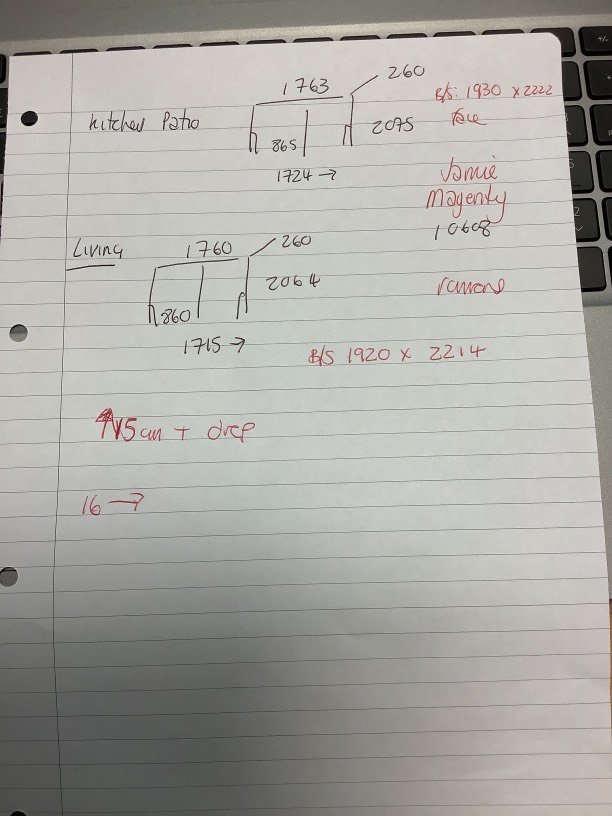 1763
260
B/S: 1930 x 2222
Kitchen Patio
865
2075
1724 →
Jamie
Magenty
10608
Living
1760
260
860
2064
1715 →
B/S 1920 x 2214
15cm + drop
16 →